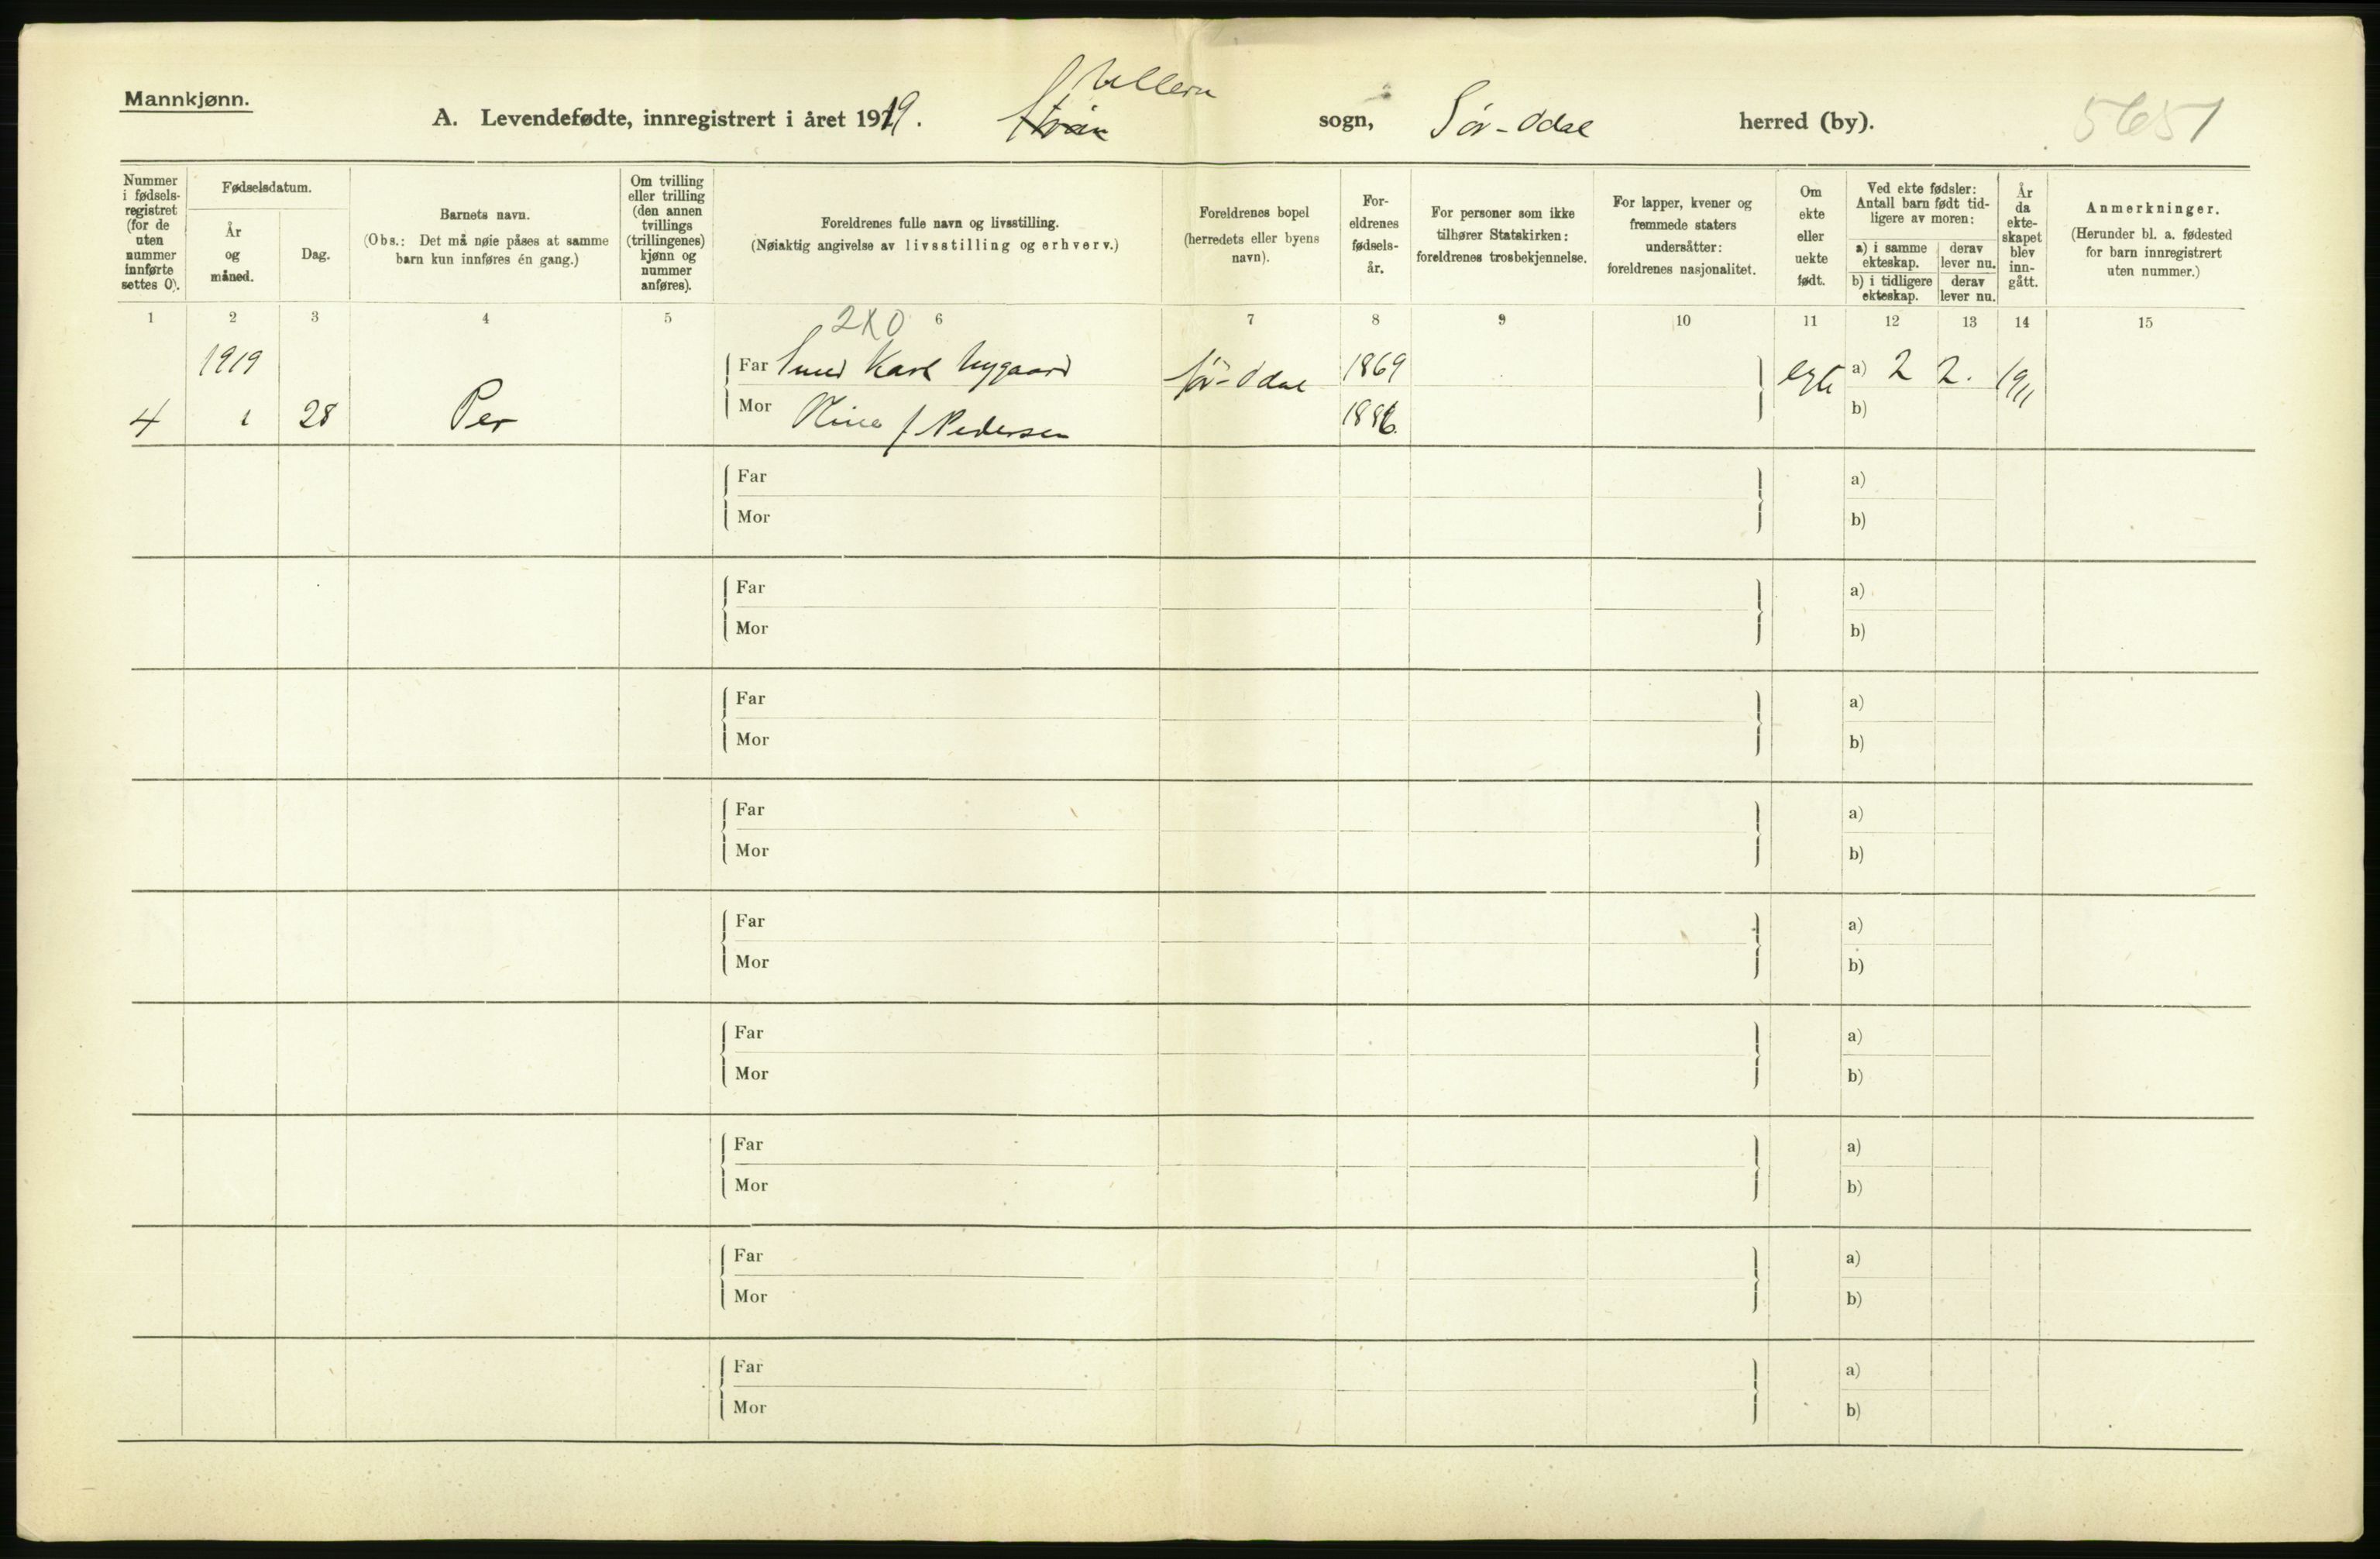 Mannkjønn.
A. Levendefødte, innregistrert i året 1919. Ullern sogn, Sør-Odal herred (by). 5651
Nummer i fødsels-registret (for de uten nummer innførte settes 0).
Fødselsdatum.
År og måned.
Dag.
Barnets navn.
(Obs.: Det må nøie påses at samme barn kun innføres én gang.)
Om tvilling eller trilling (den annen tvillings (trillingenes) kjønn og nummer anføres).
Foreldrenes fulle navn og livsstilling.
(Nøiaktig angivelse av livsstilling og erhverv.)
Foreldrenes bopel (herredets eller byens navn).
For-eldrenes fødsels-år.
For personer som ikke tilhører Statskirken: foreldrenes trosbekjennelse.
For lapper, kvener og fremmede staters undersåtter: foreldrenes nasjonalitet.
Om ekte eller uekte født.
Ved ekte fødsler: Antall barn født tid-ligere av moren:
a) i samme ekteskap.
derav lever nu.
b) i tidligere ekteskap.
derav lever nu.
År da ekte-skapet blev inn-gått.
Anmerkninger.
(Herunder bl. a. fødested for barn innregistrert uten nummer.)
1 2 3 4 5 6 7 8 9 10 11 12 13 14 15
2X0
1919 Far Karl Nygaard Sør-Odal 1869 egte a) 2 2. 1911
4 1 28 Per Mor f Pedersen 1886. b)
Far a)
Mor b)
Far a)
Mor b)
Far a)
Mor b)
Far a)
Mor b)
Far a)
Mor b)
Far a)
Mor b)
Far a)
Mor b)
Far a)
Mor b)
Far a)
Mor b)